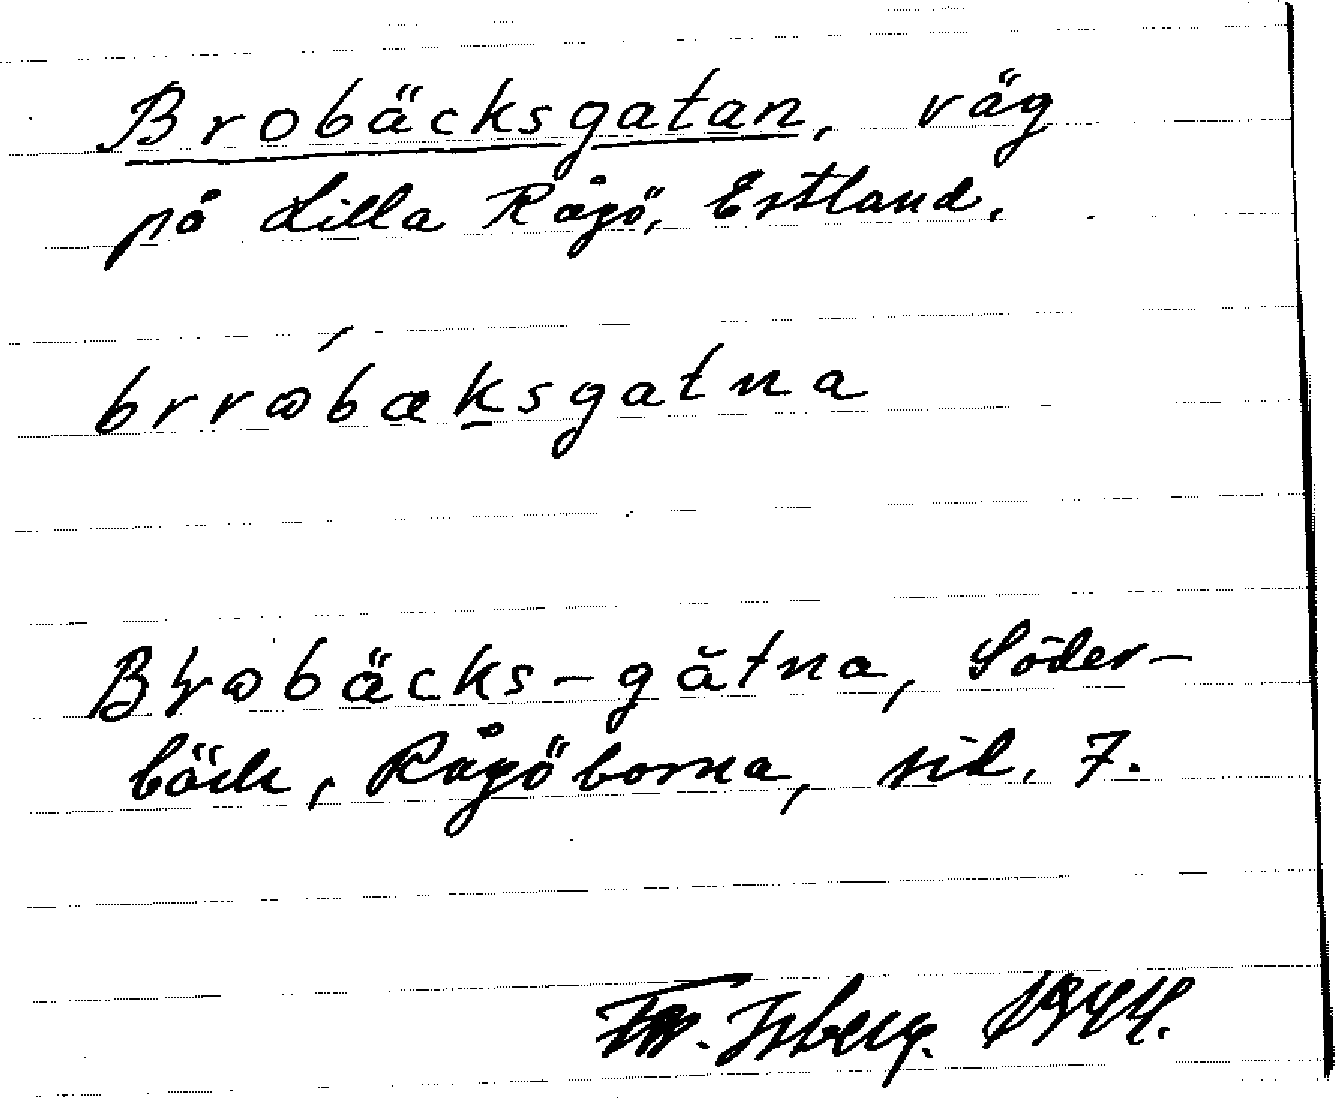 Brobäcksgatan, väg
på Lilla Rågö, Estland.
brrωbæksgatna
Brωbäcks-gătna, Söder-
bäck, Rågöborna, sid. 7.
Isberg. 1944.